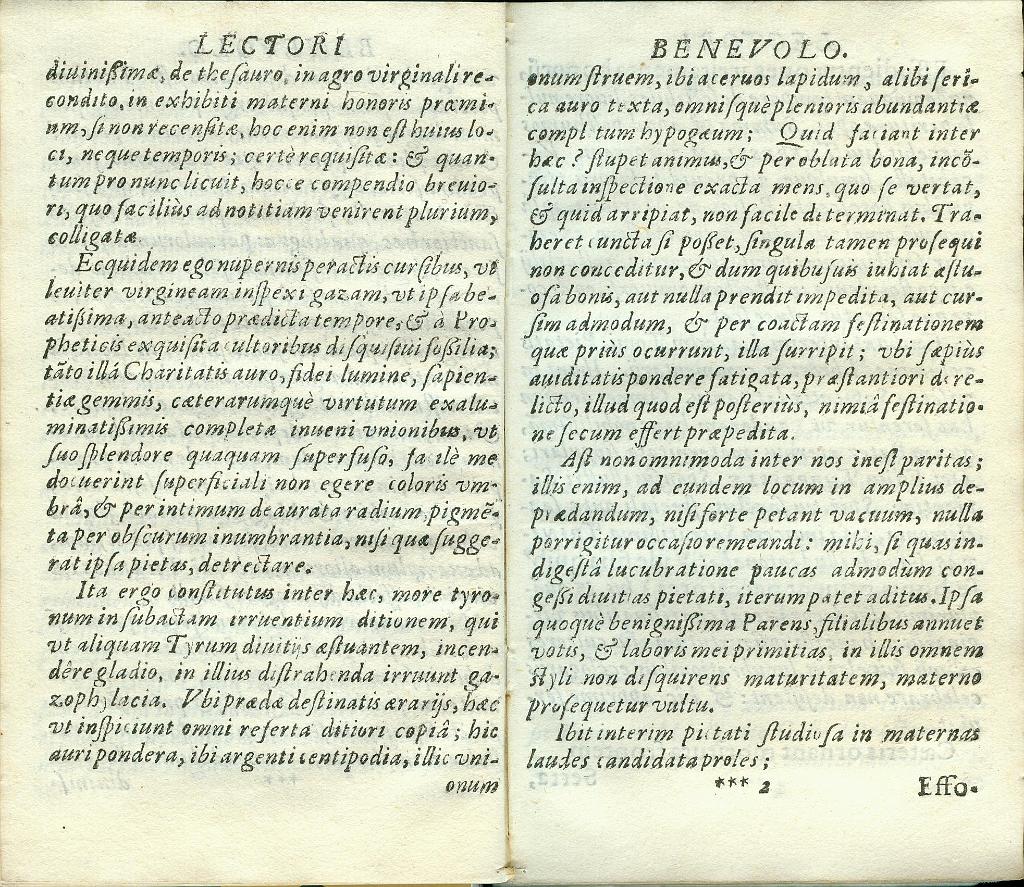 LECTORI
diuinißimæ, de thesauro, in agro virginali re-
condito, in exhibiti materni honoris præmi-
um, si non recensitæ, hoc enim non est huius lo-
ci, neque temporis; certè requisitæ: & quan-
tum pro nunc licuit, hocce compendio breuio-
ri, quo faciliùs ad notitiam venirent plurium,
colligatæ.
Ecquidem ego nupernis peractis cursibus, vt
leuiter virgineam inspexi gazam, vt ipsa be-
atißima, anteacto prædicta tempore, & à Pro-
pheticis exquisita cultoribus disquisiui foßilia;
tãto illã Charitatis auro, fidei lumine, sapien-
tiæ gemmis, cæterarumquè virtutum exalu-
minatißimis completa inueni vnionibus, vt
suo splendore quaquam superfusò, facilè me
docuerint superficiali non egere coloris vm-
brâ, & per intimum deaurata radium, pigmẽ-
ta per obscurum inumbrantia, nisi quæ sugge-
rat ipsa pietas, detrectare.
Ita ergo constitutus inter hæc, more tyro-
num in subactam irruentium ditionem, qui
vt aliquam Tyrum diuitijs æstuantem, incen-
dêre gladio, in illius distrahenda irruunt ga-
zophylacia. Vbi prædæ destinatis ærarijs, hæc
vt inspiciunt omni referta ditiori copiâ; hic
auri pondera, ibi argenti centipodia, illic vni-
onum
BENEVOLO.
onum struem, ibi aceruos lapidum, alibi seri-
ca auro texta, omnisquè plenioris abundantiæ
compl tum hypogæum; Quid faciant inter
hæc? stupet animus, & per oblata bona, incõ-
sulta inspectione exacta mens, quo se vertat,
& quid arripiat, non facile determinat. Tra-
heret cuncta si poßet, singula tamen prosequi
non conceditur, & dum quibusuis inhiat æstu-
osa bonis, aut nulla prendit impedita, aut cur-
sim admodum, & per coactam festinationem
quæ priùs ocurrunt, illa surripit; vbi sæpiùs
auiditatis pondere fatigata, præstantiori dere-
licto, illud quod est posteriùs, nimiâ festinatio-
ne secum effert præpedita.
Ast non omnimoda inter nos inest paritas;
illis enim, ad eundem locum in amplius de-
prædandum, nisi forte petant vacuum, nulla
porrigitur occasio remeandi: mihi, si quas in-
digestâ lucubratione paucas admodùm con-
geßi diuitias pietati, iterum patet aditus. Ipsa
quoquè benignißima Parens, filialibus annuet
votis, & laboris mei primitias, in illis omnem
styli non disquirens maturitatem, materno
prosequetur vultu.
Ibit interim pietati studiosa in maternas
laudes candidata proles;
*** 2
Effo-